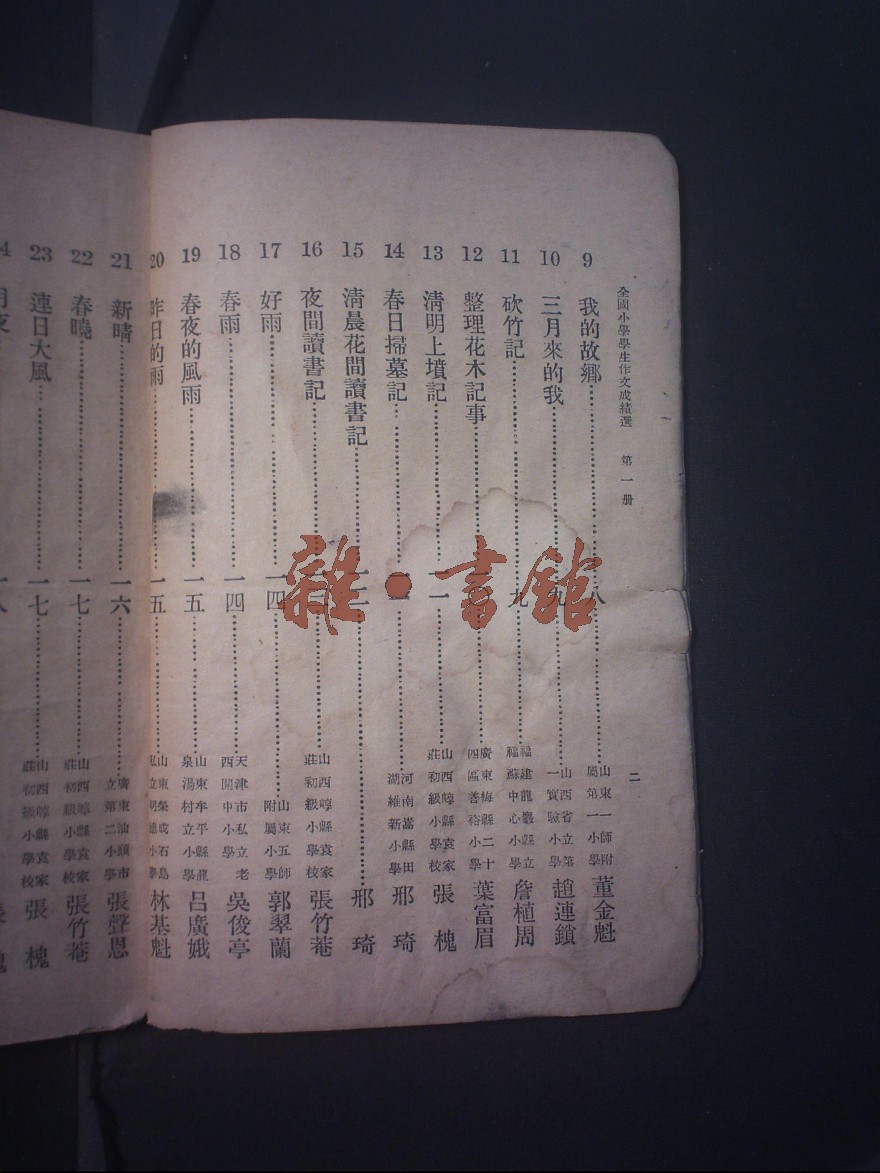 全國小學學生作文成績選 第一册
二
9 我的故鄉 八 山東一師附屬第一小學 董金魁
10 三月來的我 九 山西省立第一實驗小學 趙連鎖
11 砍竹記 九 福建龍巖縣立福蘇中心小學 詹植周
12 整理花木記事 廣東梅縣二十四區善裕小學 葉富眉
13 清明上墳記 一一 山西崞縣袁家莊初級小學校 張槐
14 春日掃墓記 河南嵩縣田湖維新小學 邢琦
15 清晨花間讀書記 邢琦
16 夜間讀書記 山西崞縣袁家莊初級小學校 張竹菴
17 好雨 一四 山東五師附屬小學 郭翠蘭
18 春雨 一四 天津市私立老西開中小學 吳俊亭
19 春夜的風雨 一五 山東牟平縣龍泉湯村立小學 呂廣娥
20 昨日的雨 一五 山東榮成石島私立明德小學 林基魁
21 新晴 一六 廣東汕頭市立第二小學 張聲恩
22 春曉 一七 山西崞縣袁家莊初級小學校 張竹菴
23 連日大風 一七 山西崞縣袁家莊初級小學校 張槐
雜·書館